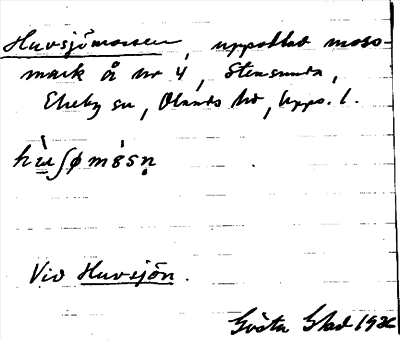 Huvsjömossen, uppodlad moss-
mark å nr 4, Stensunda,
Ekeby sn, Olands hd, Upps. l.
hu̇ʃømȯsn̥
Vid Huvsjön.
Gösta Blad 1932